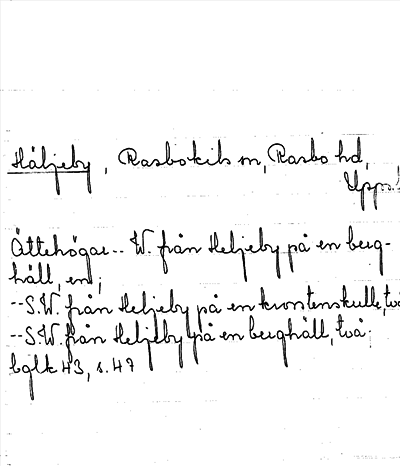 Häljeby, Rasbokils sn, Rasbo hd,
Uppl.
Ättehögar -- W. från Heljeby på en berg-
häll, en;
--S.W. från Heljeby på en krontenskulle, två
--S.W. från Heljeby på en berghäll, två;
bglk 43, s. 47